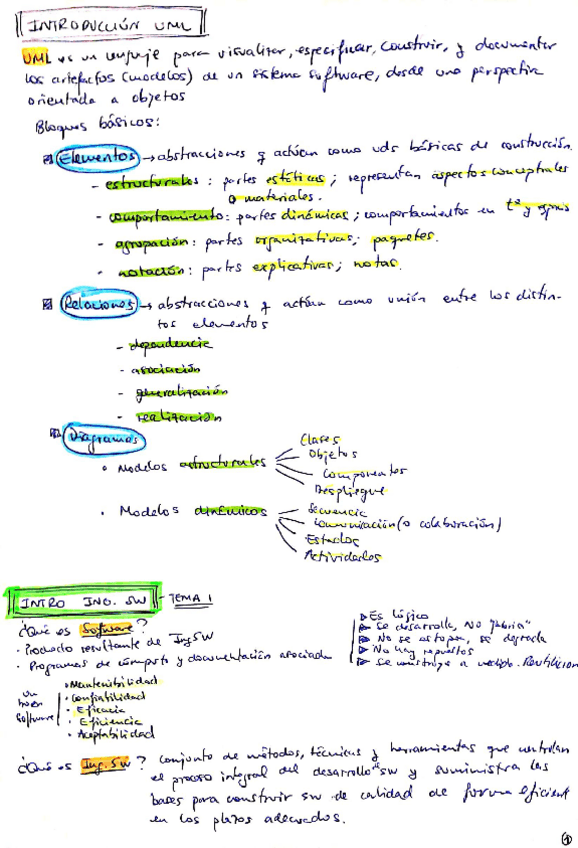 INTRODUCCIÓN UML
UML es un lenguaje para visualizar, especificar, construir, y documentar
los artefactos (modelos) de un sistema software, desde una perspectiva
orientada a objetos
Bloques básicos:
Elementos → abstracciones q actúan como uds básicas de construcción.
- estructurales: partes estáticas; representan aspectos conceptuales
o materiales.
- comportamiento: partes dinámicas; comportamientos en t° y espacio
- agrupación: partes organizativas; paquetes.
- notación: partes explicativas; notas.
Relaciones → abstracciones q actúan como unión entre los distin-
tos elementos
- dependencia
- asociación
- generalización
- realización
Diagramas
• Modelos estructurales
Clases
Objetos
Componentes
Despliegue
• Modelos dinámicos
Secuencia
Comunicación (o colaboración)
Estados
Actividades
INTRO ING. SW - TEMA 1
¿Qué es Software?
· Producto resultante de IngSW
· Programas de cómputo y documentación asociada
▷ Es lógico
▷ Se desarrolla, NO "fabrica"
▷ No se estropea, se degrada
▷ No hay repuestos
▷ Se construye a medida. Reutilización
Un buen software
· Mantenibilidad
· Confiabilidad
· Eficacia
· Eficiencia
· Aceptabilidad
¿Qué es Ing. SW? conjunto de métodos, técnicas y herramientas que controlan
el proceso integral del desarrollo sw y suministra las
bases para construir sw de calidad de forma eficient
en los plazos adecuados.
1